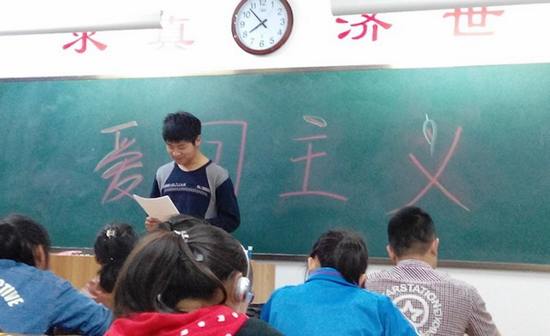 求真 济世
爱国主义
ARSTATION